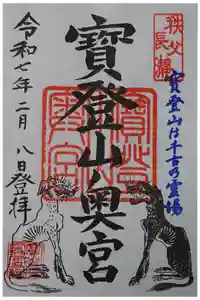 秩父
長瀞
寳登山は千古の霊場
寳登山奥宮
令和七年二月八日登拝